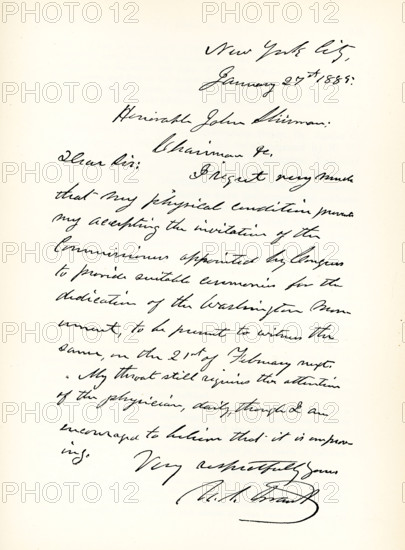 New York City,
January 27th 1885.
Honorable John Sherman:
Chairman &c.
Dear Sir:
I regret very much
that my physical condition prevents
my accepting the invitation of the
Commissioners appointed by Congress
to provide suitable ceremonies for the
dedication of the Washington Mon-
ument, to be present to witness the
same, on the 21st of February next.
My throat still requires the attention
of the physician, daily, though I am
encouraged to believe that it is improv-
ing.
Very respectfully yours
U. S. Grant
PHOTO 12